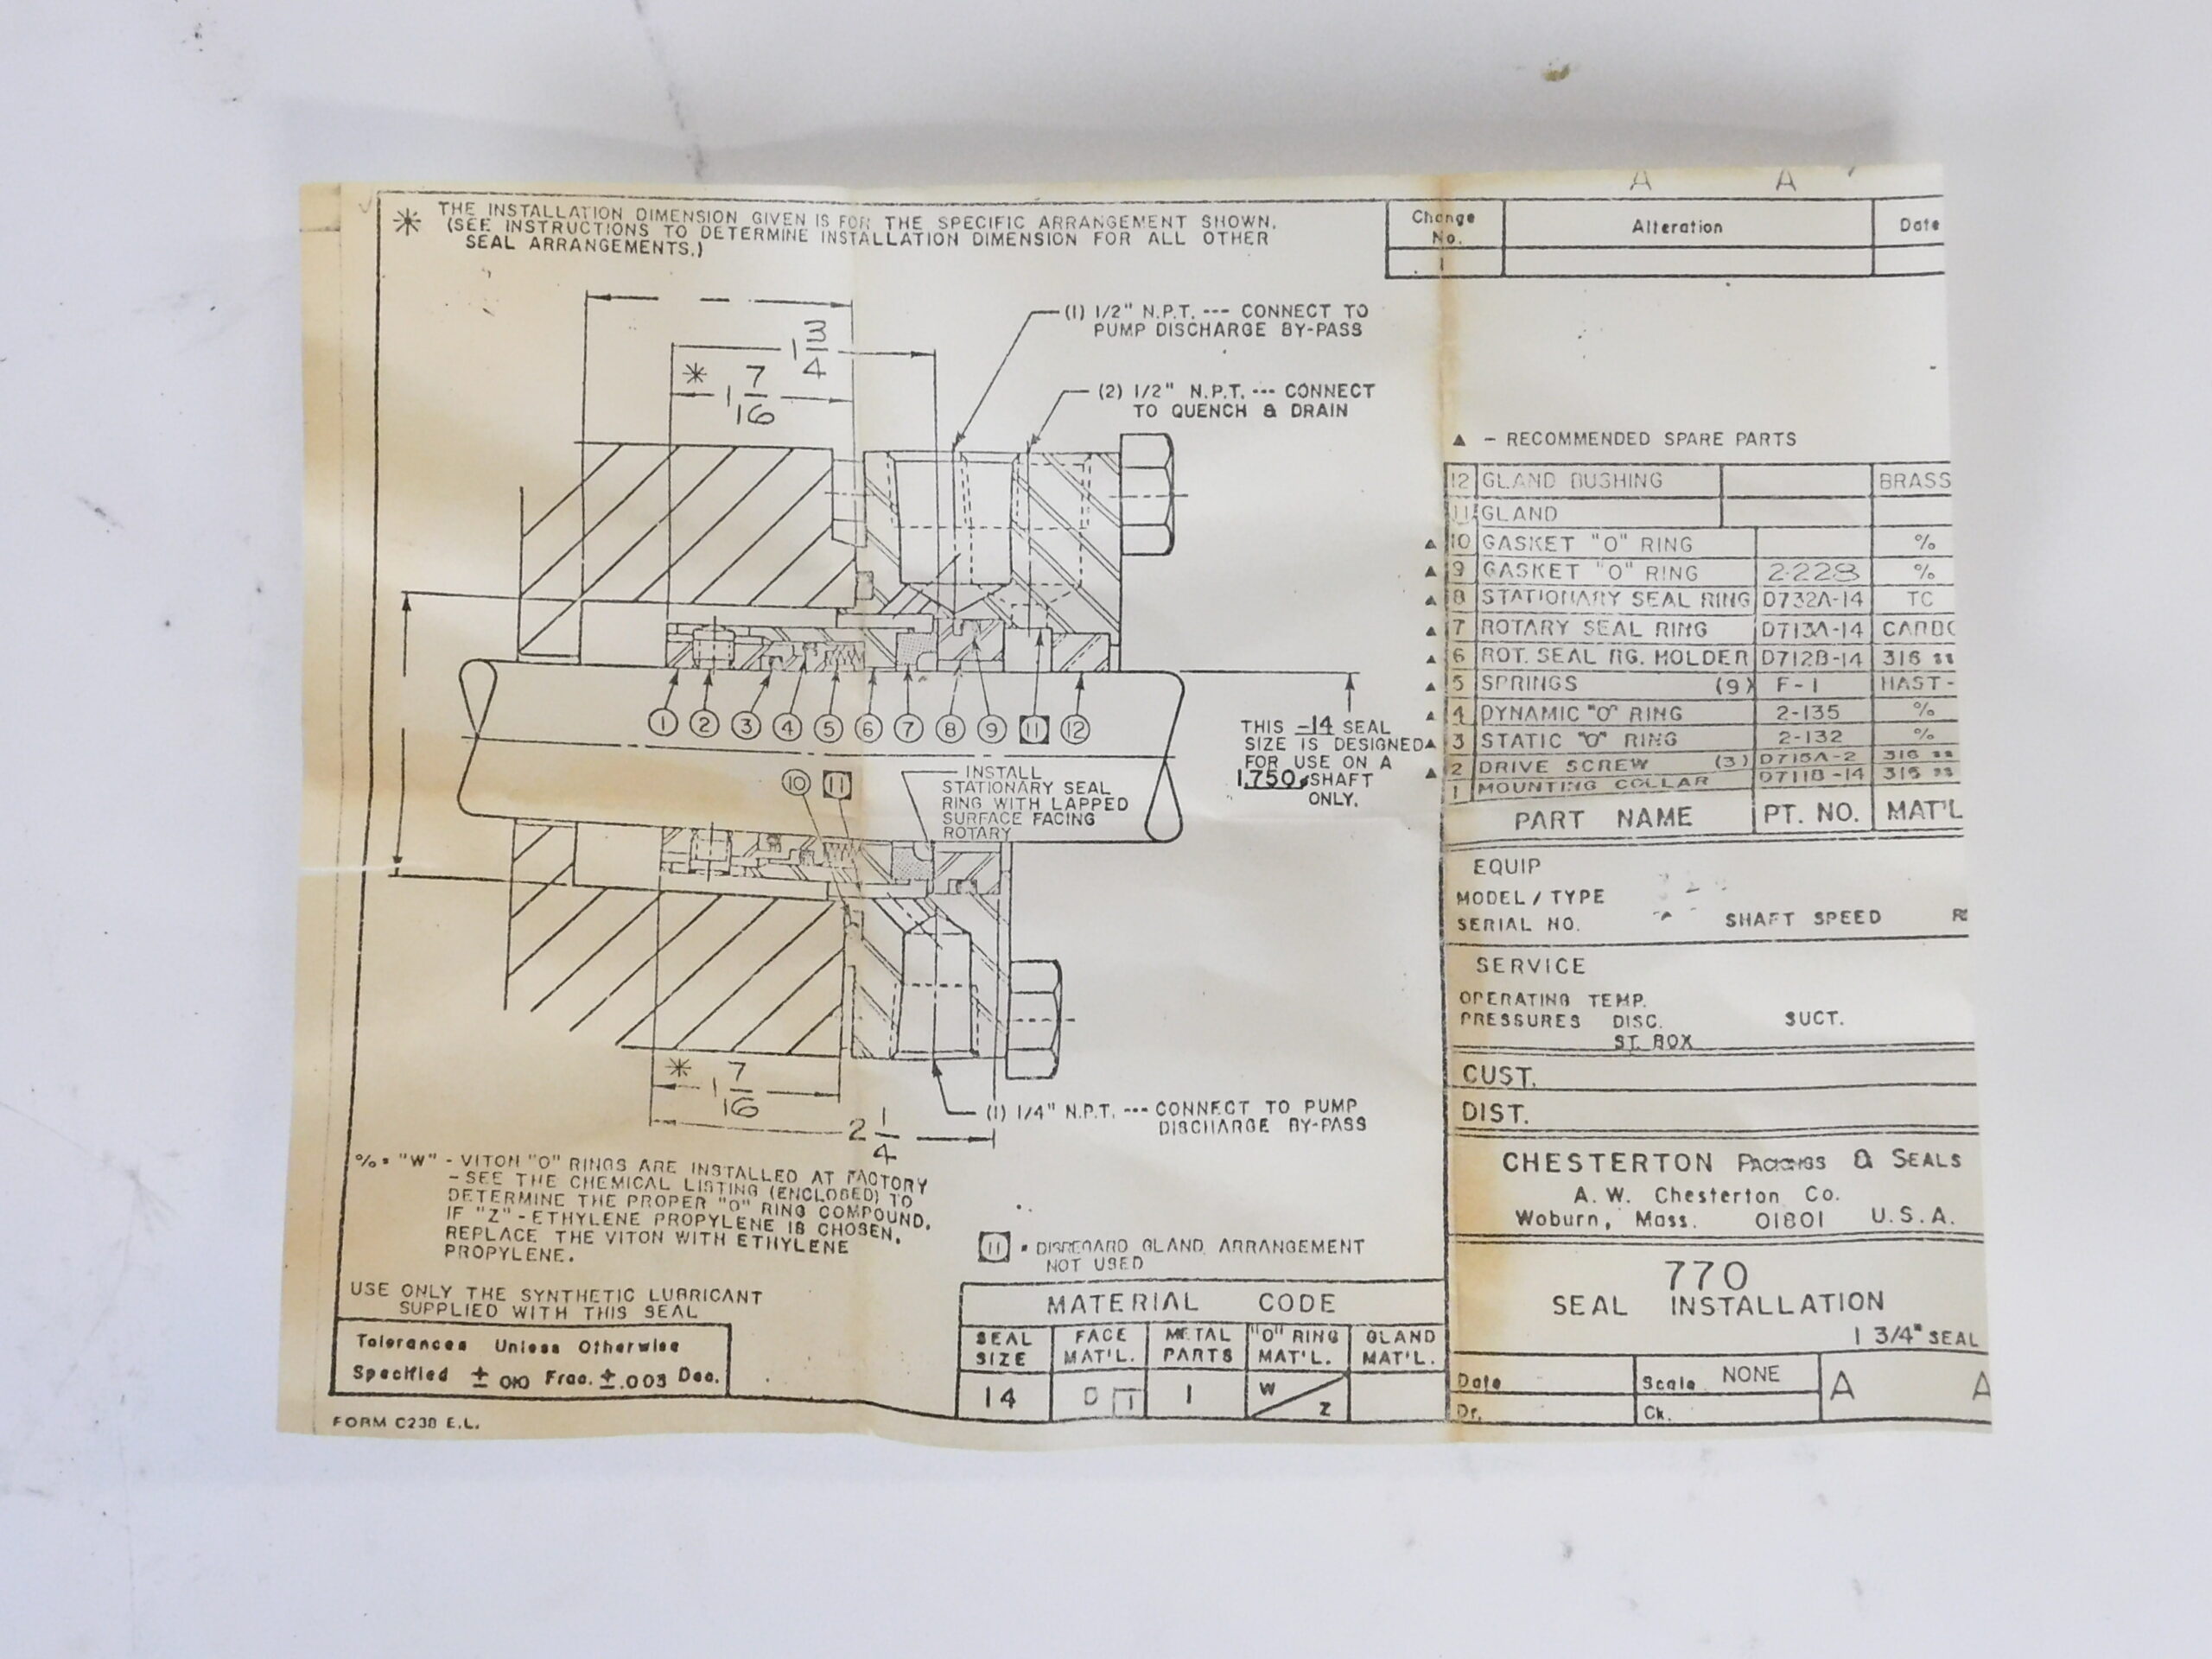 A A
* THE INSTALLATION DIMENSION GIVEN IS FOR THE SPECIFIC ARRANGEMENT SHOWN.
(SEE INSTRUCTIONS TO DETERMINE INSTALLATION DIMENSION FOR ALL OTHER
SEAL ARRANGEMENTS.)
Change No. Alteration Date
1
(1) 1/2" N.P.T. --- CONNECT TO
PUMP DISCHARGE BY-PASS
1 3/4
* 1 7/16
(2) 1/2" N.P.T. --- CONNECT
TO QUENCH & DRAIN
▲ - RECOMMENDED SPARE PARTS
12 GLAND BUSHING BRASS
11 GLAND
▲ 10 GASKET "O" RING %
▲ 9 GASKET "O" RING 2-228 %
▲ 8 STATIONARY SEAL RING D732A-14 TC
▲ 7 ROTARY SEAL RING D713A-14 CARBO
▲ 6 ROT. SEAL RG. HOLDER D712B-14 316 ss
▲ 5 SPRINGS (9) F-1 HAST-
▲ 4 DYNAMIC "O" RING 2-135 %
▲ 3 STATIC "O" RING 2-132 %
▲ 2 DRIVE SCREW (3) D715A-2 316 ss
1 MOUNTING COLLAR D711B-14 316 ss
PART NAME PT. NO. MAT'L
1 2 3 4 5 6 7 8 9 11 12
THIS -14 SEAL
SIZE IS DESIGNED
FOR USE ON A
1.750 SHAFT
ONLY.
10 11
INSTALL
STATIONARY SEAL
RING WITH LAPPED
SURFACE FACING
ROTARY
EQUIP
MODEL / TYPE
SERIAL NO. SHAFT SPEED
SERVICE
OPERATING TEMP.
PRESSURES DISC. SUCT.
ST. BOX
CUST.
DIST.
* 1 7/16
2 1/4
(1) 1/4" N.P.T. --- CONNECT TO PUMP
DISCHARGE BY-PASS
CHESTERTON PACKINGS & SEALS
A. W. Chesterton Co.
Woburn, Mass. 01801 U.S.A.
% = "W" - VITON "O" RINGS ARE INSTALLED AT FACTORY
- SEE THE CHEMICAL LISTING (ENCLOSED) TO
DETERMINE THE PROPER "O" RING COMPOUND.
IF "Z" - ETHYLENE PROPYLENE IS CHOSEN,
REPLACE THE VITON WITH ETHYLENE
PROPYLENE.
11 = DISREGARD GLAND ARRANGEMENT
NOT USED
USE ONLY THE SYNTHETIC LUBRICANT
SUPPLIED WITH THIS SEAL
770
SEAL INSTALLATION
1 3/4" SEAL
Tolerances Unless Otherwise
Specified ± .010 Frac. ± .003 Dec.
MATERIAL CODE
SEAL SIZE FACE MAT'L. METAL PARTS "O" RING MAT'L. GLAND MAT'L.
14 O T 1 W/Z
Date Scale NONE A A
Dr. Ck.
FORM C230 E.L.